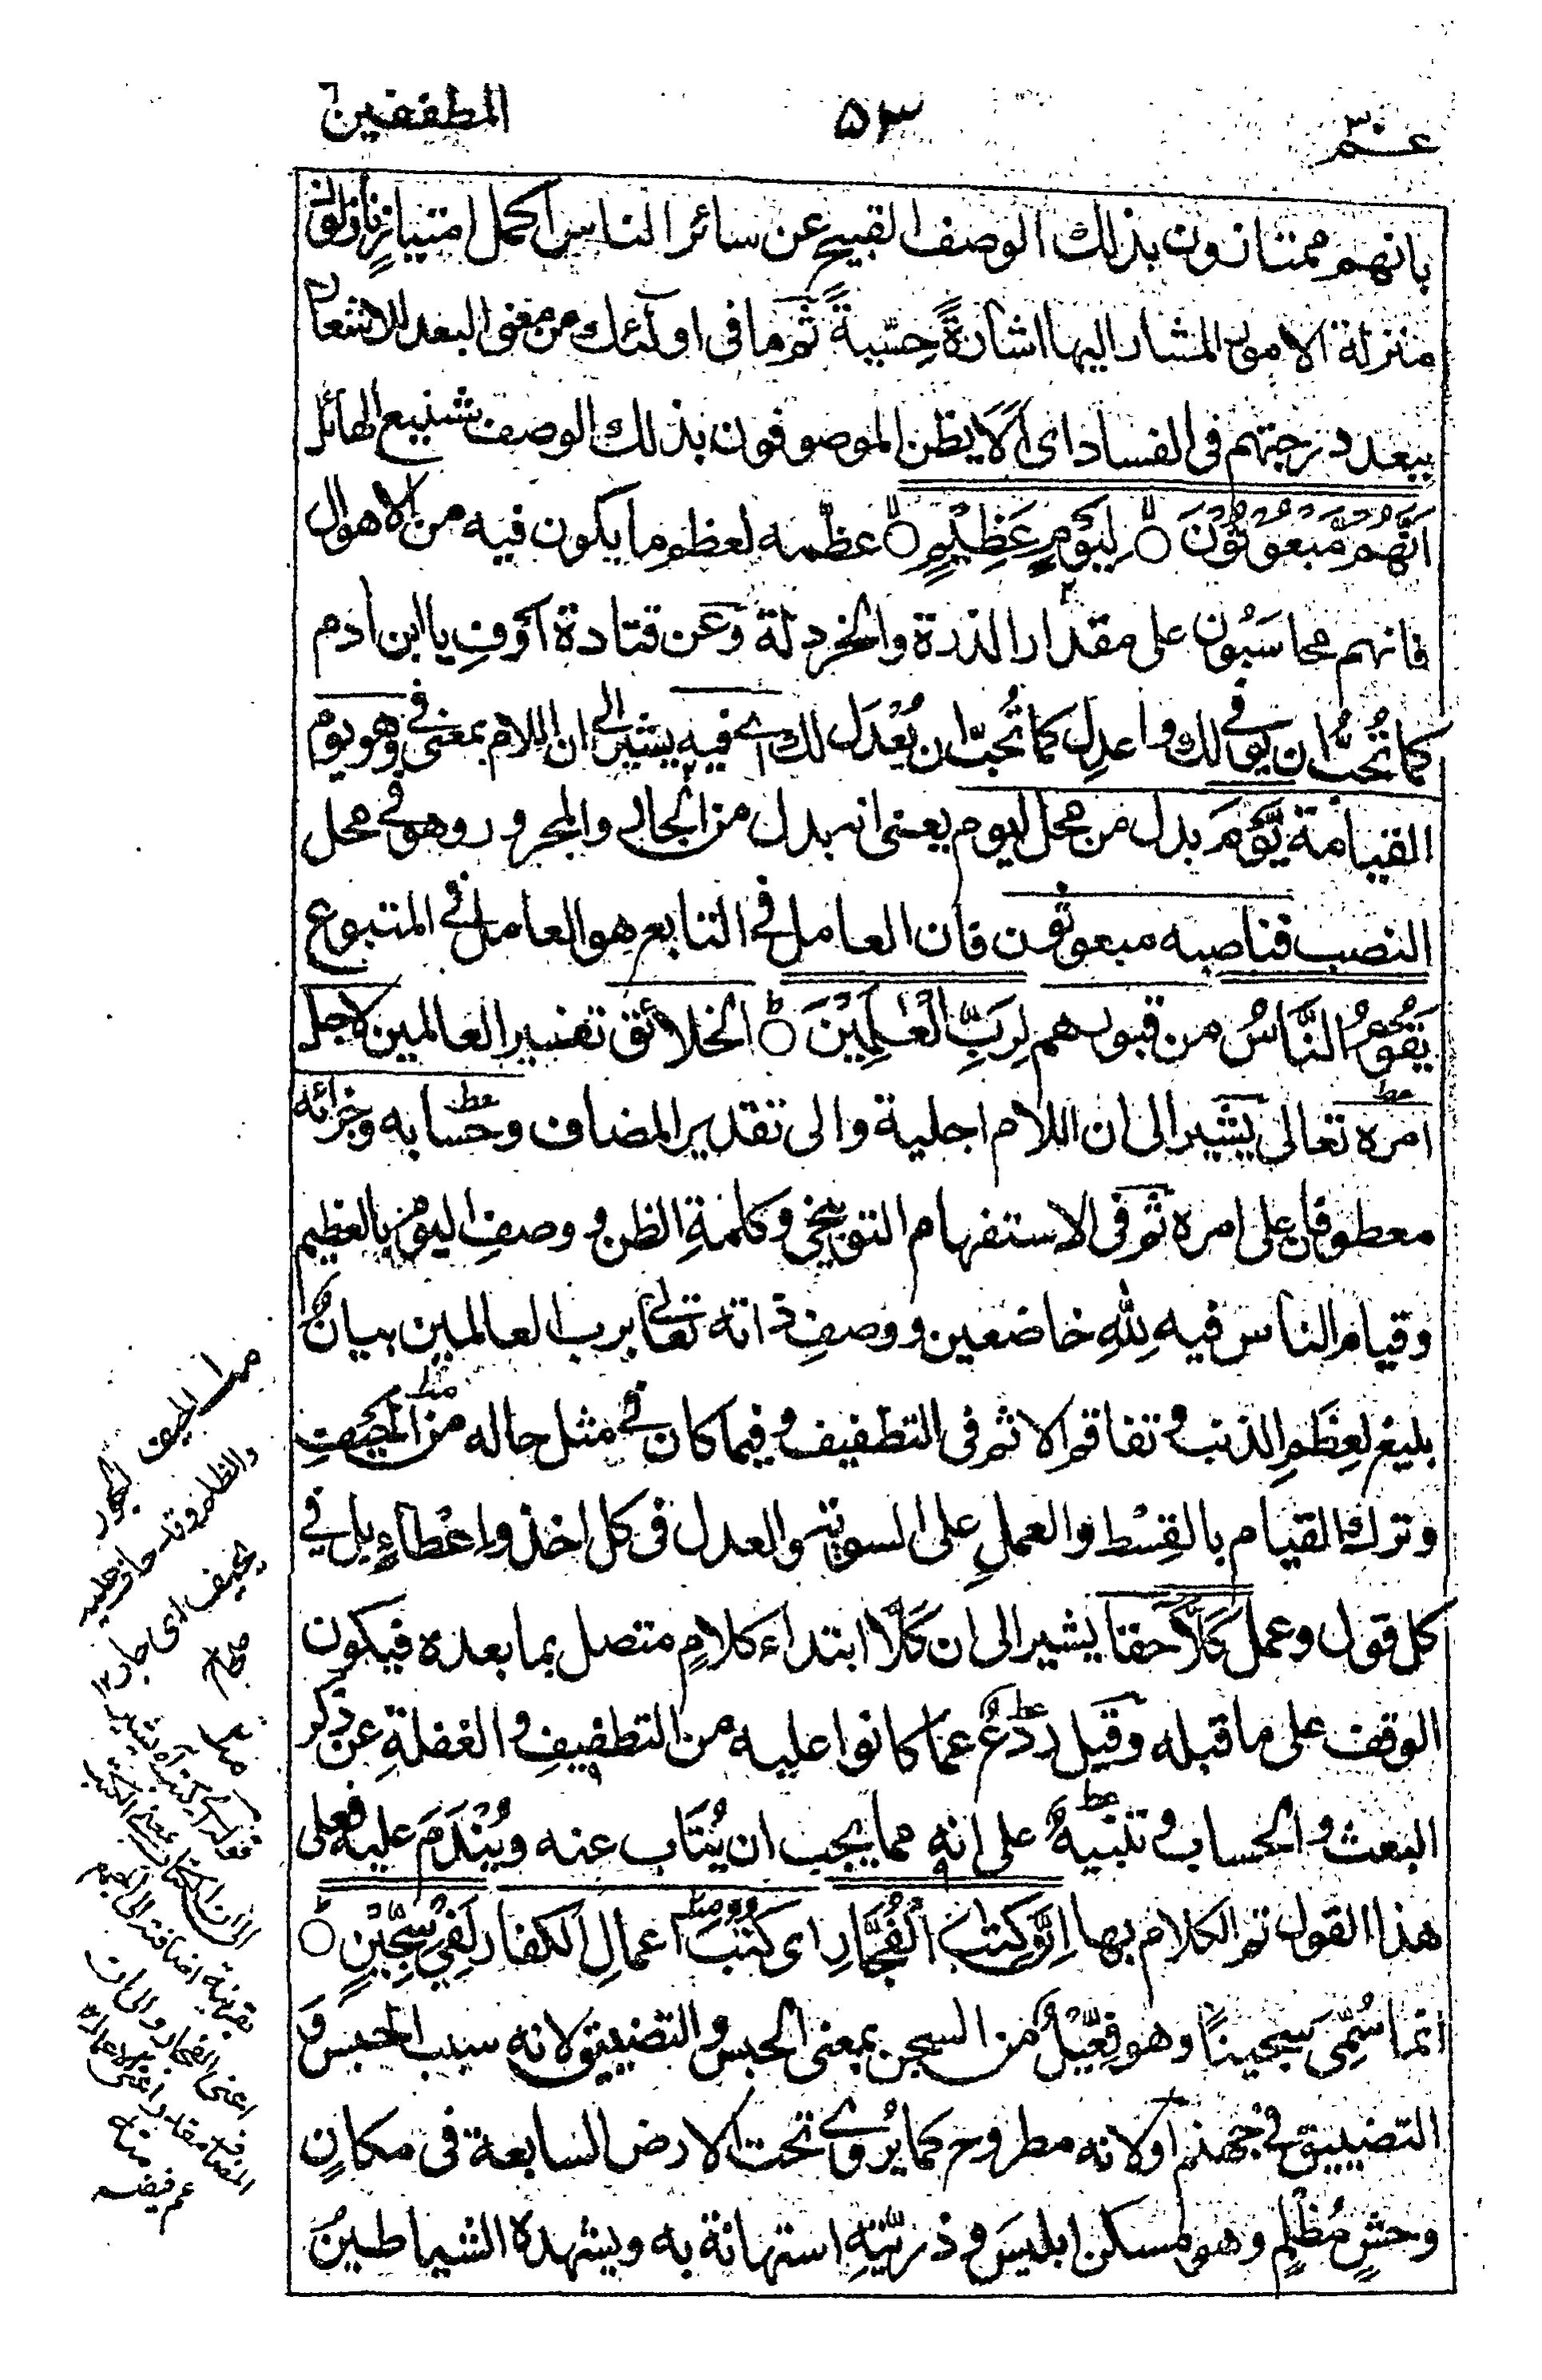 عم ٣٠
٥٣
المطففين
بانهم ممتازون بذلك الوصف القبيح عن سائر الناس اكمل امتياز نازلون
منزلة الامور المشار اليها اشارةً حِسّيةً ثم ما فى اولٓئك من معنى البعد للاشعار
ببعد درجتهم فى الفساد اى اَلَا يظن الموصوفون بذلك الوصف شنيع الهائل
اَنَّهُمْ مَّبْعُوْثُوْنَ لِيَوْمٍ عَظِيْمٍ عظّمه لعظم ما يكون فيه من الاهوال
فانهم محاسَبُون على مقدار الذرة والخردلة وعن قتادة اَوْفِ يا ابن ادم
كما تُحبُّ ان يوفى لك واعدِل كما تُحبّ ان يُعْدَل لك اے فيه يشير الى ان اللام بمعنى فى وهو يوم
القيامة يَّوْمَ بدل من محل ليوم يعنى انه بدل من الجار والمجرور وهو فى محل
النصب فناصبه مبعوثون فان العامل فى التابع هو العامل فى المتبوع
يَقُوْمُ النَّاسُ من قبورهم لِرَبِّ الْعٰلَمِيْنَ الخلائق تفسير العالمين لاجل
امره تعالى يشير الى ان اللام اجلية والى تقدير المضاف وحسابه وجزائه
معطوفان على امره ثم فى الاستفهام التوبيخى وكلمةِ الظن و وصفِ اليوم بالعظيم
وقيام الناس فيه لِلّٰهِ خاضعين ووصفِ ذاته تعالى برب العالمين بيانٌ
بليغ لعِظَمِ الذنب و تفاقم الاثم فى التطفيف و فيما كان فى مثل حاله من الحيف
وترك القيام بالقِسْط والعملِ على السوية والعدل فى كل اخذ واعْطاءٍ بل فى
كل قول وعمل كَلَّا حقا يشير الى ان كَلَّا ابتداء كلامٍ متصل بما بعده فيكون
الوقف على ما قبله وقيل ردعٌ عما كانوا عليه من التطفيفِ و الغفلةِ عن ذكر
البعث و الحساب و تنبيهٌ على انه مما يجب ان يُتَاب عنه ويُنْدَمَ عليه فعلى
هذا القول تم الكلام بها اِنَّ كِتٰبَ الْفُجَّارِ اى كُتُبَ اعمالِ الكفار لَفِىْ سِجِّيْنٍ
انما سُمِّى سجينًا وهو فِعِّيْلٌ من السجن بمعنى الحبس و التضييق لانه سبب الحبس وَ
التضييق فى جهنم اولانه مطروح كما يُروٰے تحت الارض السابعة فى مكانٍ
وحشٍ مُظْلِمٍ وهو مسكن ابليسَ و ذريّتِهِ استهانة به ويشهده الشياطينُ
الحيف الجور
والظلم وقد حاف عليه
يحيف اى جار ١٢